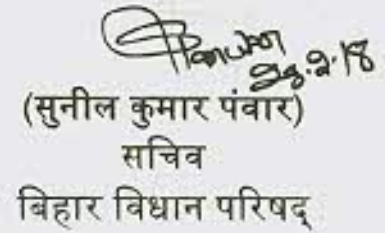 (सुनील कुमार पंवार)
सचिव
बिहार विधान परिषद्